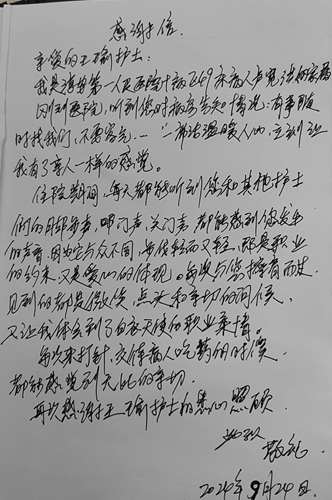 感谢信.
亲爱的王瑜护士:
我是海安第一人民医院十病区49床病人卢宽法的家属
刚到医院,听到您对病房告知情况:有事可及
时找我们,不要客气…一席话温暖人心,立刻让
我有了亲人一样的感觉。
住院期间,每天都能听到您和其他护士
们的脚步声,呼门声,关门声都能感到你发出
的声音,因为它与众不同,步伐轻而又轻,既是职业
的约束,又是爱心的体现。每次与您擦肩而过,
见到的都是微笑,点头和亲切的问候,
又让我体会到了白衣天使的职业柔情。
每次来打针,交待病人吃药的时候,
都能感觉到无比的亲切.
再次感谢王瑜护士的悉心照顾.
此致
敬礼
2024年9月20日.